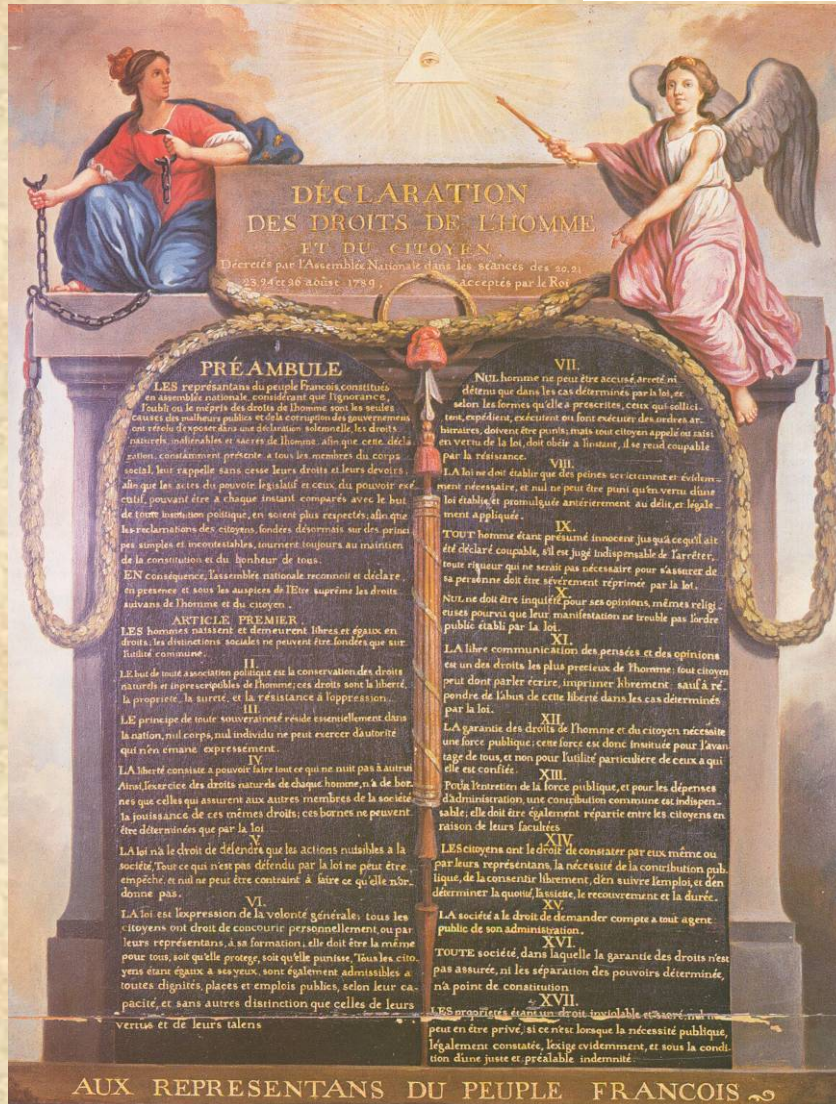 DÉCLARATION
DES DROITS DE L'HOMME
ET DU CITOYEN
Décretés par l'Assemblée Nationale dans les séances des 20, 21
23, 24 et 26 août 1789, acceptés par le Roi
PRÉAMBULE
LES représantans du peuple Francois, constitués
en assemblée nationale, considérant que l'ignorance,
l'oubli ou le mépris des droits de l'homme sont les seules
causes des malheurs publics et de la corruption des gouvernemens
ont résolu d'exposer dans une déclaration solemnelle, les droits
naturels, inaliénables et sacrés de l'homme, afin que cette décla
ration, constamment présente a tous les membres du corps
social, leur rappelle sans cesse leurs droits et leurs devoirs,
afin que les actes du pouvoir législatif et ceux du pouvoir exé
cutif, pouvant être à chaque instant comparés avec le but
de toute institution politique, en soient plus respectés; afin que
les reclamations des citoyens, fondées désormais sur des princi
pes simples et incontestables, tournent toujours au maintien
de la constitution et du bonheur de tous.
EN conséquence, l'assemblée nationale reconnoit et déclare,
en presence et sous les auspices de l'Etre suprême les droits
suivans de l'homme et du citoyen.
ARTICLE PREMIER.
LES hommes naissent et demeurent libres et égaux en
droits; les distinctions sociales ne peuvent être fondées que sur
l'utilité commune.
II.
LE but de toute association politique est la conservation des droits
naturels et inprescriptibles de l'homme; ces droits sont la liberté,
la propriété, la sureté, et la résistance à l'oppression.
III.
LE principe de toute souveraineté réside essentiellement dans
la nation, nul corps, nul individu ne peut exercer d'autorité
qui n'en émane expressement.
IV.
LA liberté consiste a pouvoir faire tout ce qui ne nuit pas à autrui
Ainsi, l'exercice des droits naturels de chaque homme, n'a de bor
nes que celles qui assurent aux autres membres de la société
la jouissance de ces mêmes droits; ces bornes ne peuvent
être déterminées que par la loi
V.
LA loi n'a le droit de défendre que les actions nuisibles a la
société, Tout ce qui n'est pas défendu par la loi ne peut être
empêché, et nul ne peut être contraint à faire ce qu'elle n'or-
donne pas.
VI.
LA loi est l'expression de la volonté générale; tous les
citoyens ont droit de concourir personnellement, ou par
leurs représentans, à sa formation; elle doit être la même
pour tous, soit qu'elle protege, soit qu'elle punisse, Tous les cito-
yens étant égaux à ses yeux, sont également admissibles a
toutes dignités, places et emplois publics, selon leur ca-
pacité, et sans autres distinction que celles de leurs
vertus et de leurs talens
VII.
NUL homme ne peut être accusé, arreté, ni
détenu que dans les cas déterminés par la loi, et
selon les formes qu'elle a prescrites, ceux qui sollici-
tent, expédient, exécutent ou font exécuter des ordres ar-
bitraires, doivent être punis; mais tout citoyen appelé ou saisi
en vertu de la loi, doit obéir a l'instant, il se rend coupable
par la résistance.
VIII.
LA loi ne doit établir que des peines strictement et évidem-
ment nécessaire, et nul ne peut être puni qu'en vertu d'une
loi établie et promulguée antérierement au délit, et légale-
ment appliquée.
IX.
TOUT homme étant présumé innocent jusqu'à ce qu'il ait
été déclaré coupable, s'il est jugé indispensable de l'arrêter,
toute rigueur qui ne serait pas nécessaire pour s'assurer de
sa personne doit être sévèrement réprimée par la loi.
X.
NUL ne doit être inquiété pour ses opinions, mêmes religi-
euses pourvu que leur manifestation ne trouble pas l'ordre
public établi par la loi.
XI.
LA libre communication des pensées et des opinions
est un des droits les plus precieux de l'homme; tout citoyen
peut dont parler écrire, imprimer librement; sauf à ré-
pondre de l'abus de cette liberté dans les cas déterminés
par la loi.
XII.
LA garantie des droits de l'homme et du citoyen nécessite
une force publique; cette force est donc instituée pour l'avan
tage de tous, et non pour l'utilité particuliere de ceux a qui
elle est confiée.
XIII.
Pour l'entretien de la force publique, et pour les dépenses
d'administration, une contribution commune est indispen-
sable; elle doit être également répartie entre les citoyens en
raison de leurs facultées
XIV.
LES citoyens ont le droit de constater par eux même ou
par leurs représentans, la nécessité de la contribution pub-
lique, de la consentir librement, d'en suivre l'emploi, et d'en
déterminer la quotité, l'assiette, le recouvrement et la durée.
XV.
LA société a le droit de demander compte a tout agent
public de son administration.
XVI.
TOUTE société, dans laquelle la garantie des droits n'est
pas assurée, ni les séparation des pouvoirs déterminée,
n'a point de constitution
XVII.
LES propriétés étant un droit inviolable et sacré, nul ne
peut en être privé, si ce n'est lorsque la nécessité publique,
légalement constatée, l'exige evidemment, et sous la condi-
tion d'une juste et préalable indemnité.
AUX REPRESENTANS DU PEUPLE FRANCOIS